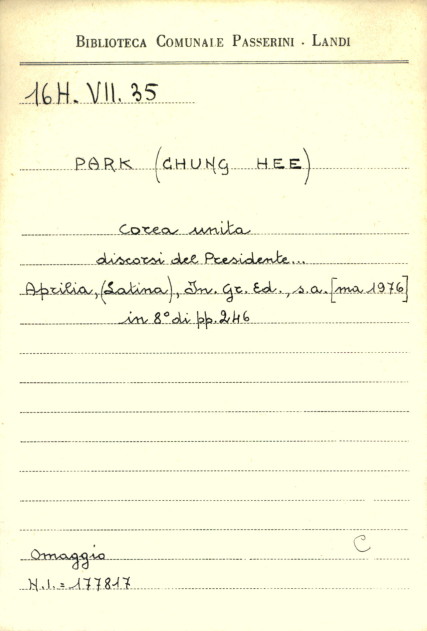 BIBLIOTECA COMUNALE PASSERINI - LANDI
16H. VII. 35
PARK (CHUNG HEE)
Corea unita
discorsi del Presidente...
Aprilia, (Latina), In. Gr. Ed., s.a. [ma 1976]
in 8° di pp. 246
C
Omaggio
N.I. = 177817